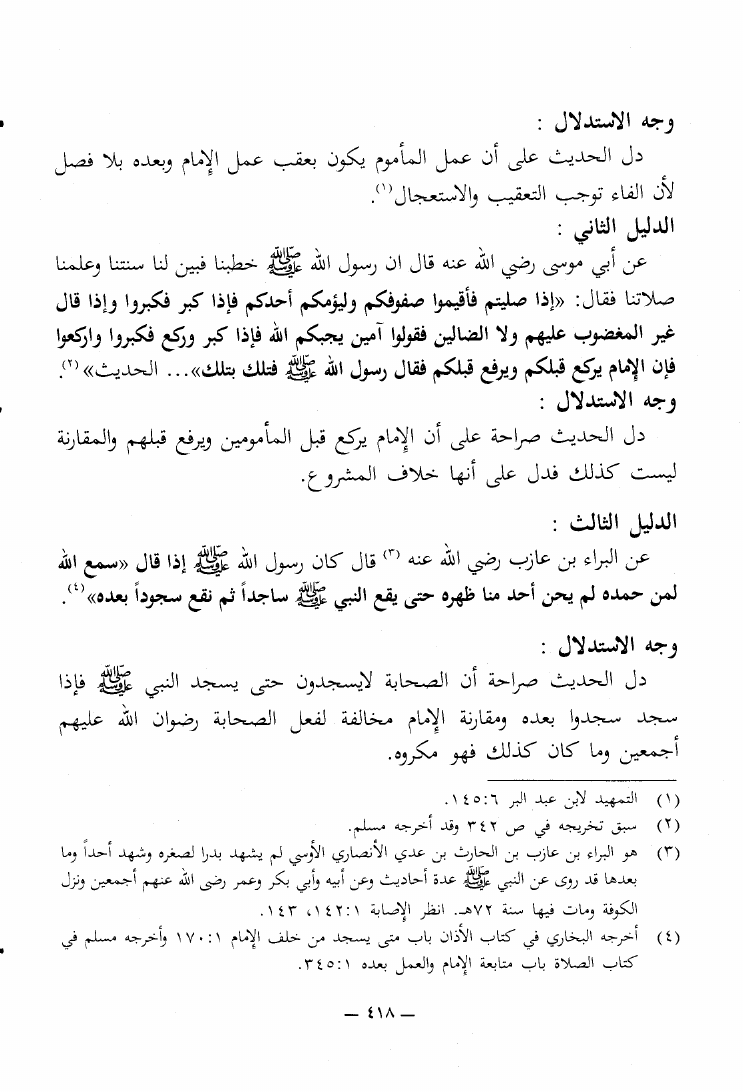 وجه الاستدلال :
دل الحديث على أن عمل المأموم يكون بعقب عمل الإمام وبعده بلا فصل
لأن الفاء توجب التعقيب والاستعجال(١).
الدليل الثاني :
عن أبي موسى رضي الله عنه قال ان رسول الله ﷺ خطبنا فبين لنا سنتنا وعلمنا
صلاتنا فقال: «إذا صليتم فأقيموا صفوفكم وليؤمكم أحدكم فإذا كبر فكبروا وإذا قال
غير المغضوب عليهم ولا الضالين فقولوا آمين يجبكم الله فإذا كبر وركع فكبروا واركعوا
فإن الإمام يركع قبلكم ويرفع قبلكم فقال رسول الله ﷺ فتلك بتلك»... الحديث»(٢).
وجه الاستدلال :
دل الحديث صراحة على أن الإمام يركع قبل المأمومين ويرفع قبلهم والمقارنة
ليست كذلك فدل على أنها خلاف المشروع.
الدليل الثالث :
عن البراء بن عازب رضي الله عنه (٣) قال كان رسول الله ﷺ إذا قال «سمع الله
لمن حمده لم يحن أحد منا ظهره حتى يقع النبي ﷺ ساجداً ثم نقع سجوداً بعده»(٤).
وجه الاستدلال :
دل الحديث صراحة أن الصحابة لايسجدون حتى يسجد النبي ﷺ فإذا
سجد سجدوا بعده ومقارنة الإمام مخالفة لفعل الصحابة رضوان الله عليهم
أجمعين وما كان كذلك فهو مكروه.
(١) التمهيد لابن عبد البر ١٤٥:٦.
(٢) سبق تخريجه في ص ٣٤٢ وقد أخرجه مسلم.
(٣) هو البراء بن عازب بن الحارث بن عدي الأنصاري الأوسي لم يشهد بدرا لصغره وشهد أحداً وما
بعدها قد روى عن النبي ﷺ عدة أحاديث وعن أبيه وأبي بكر وعمر رضى الله عنهم أجمعين ونزل
الكوفة ومات فيها سنة ٧٢هـ. انظر الإصابة ١٤٢:١، ١٤٣.
(٤) أخرجه البخاري في كتاب الأذان باب متى يسجد من خلف الإمام ١٧٠:١ وأخرجه مسلم في
كتاب الصلاة باب متابعة الإمام والعمل بعده ٣٤٥:١.
— ٤١٨ —